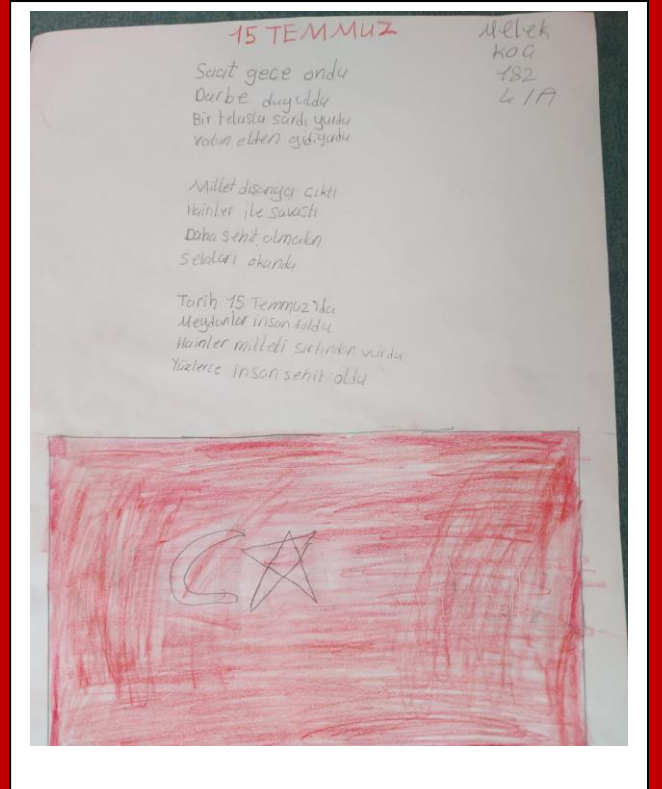 15 TEMMUZ
Melek
KOÇ
182
4/A
Saat gece ondu
Darbe duyuldu
Bir telaşla sardı yurdu
Vatan elden gidiyordu
Millet dışarıya çıktı
Hainler ile savaştı
Daha şehit olmadan
Selaları okundu
Tarih 15 Temmuz'du
Meydanlar insan doldu
Hainler milleti sırtından vurdu
Yüzlerce insan şehit oldu